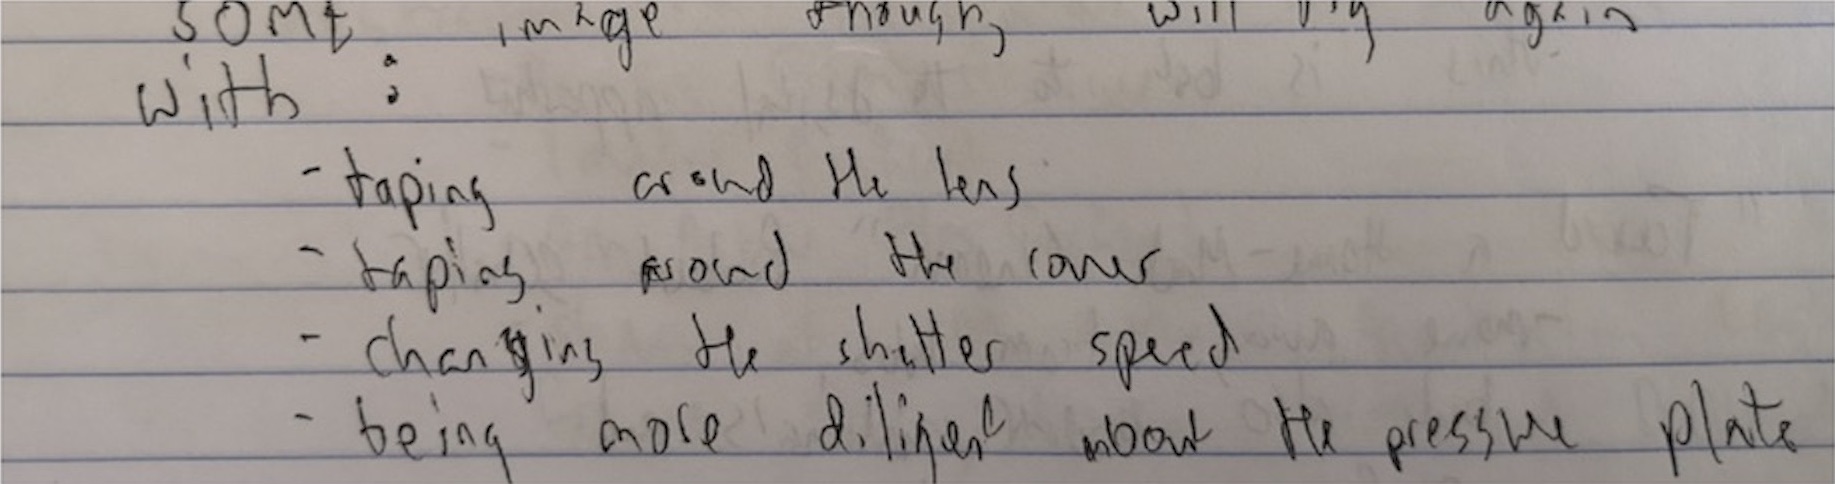 some image though, will try again
with :
- taping around the lens
- taping around the cover
- changing the shutter speed
- being more diligent about the pressure plate